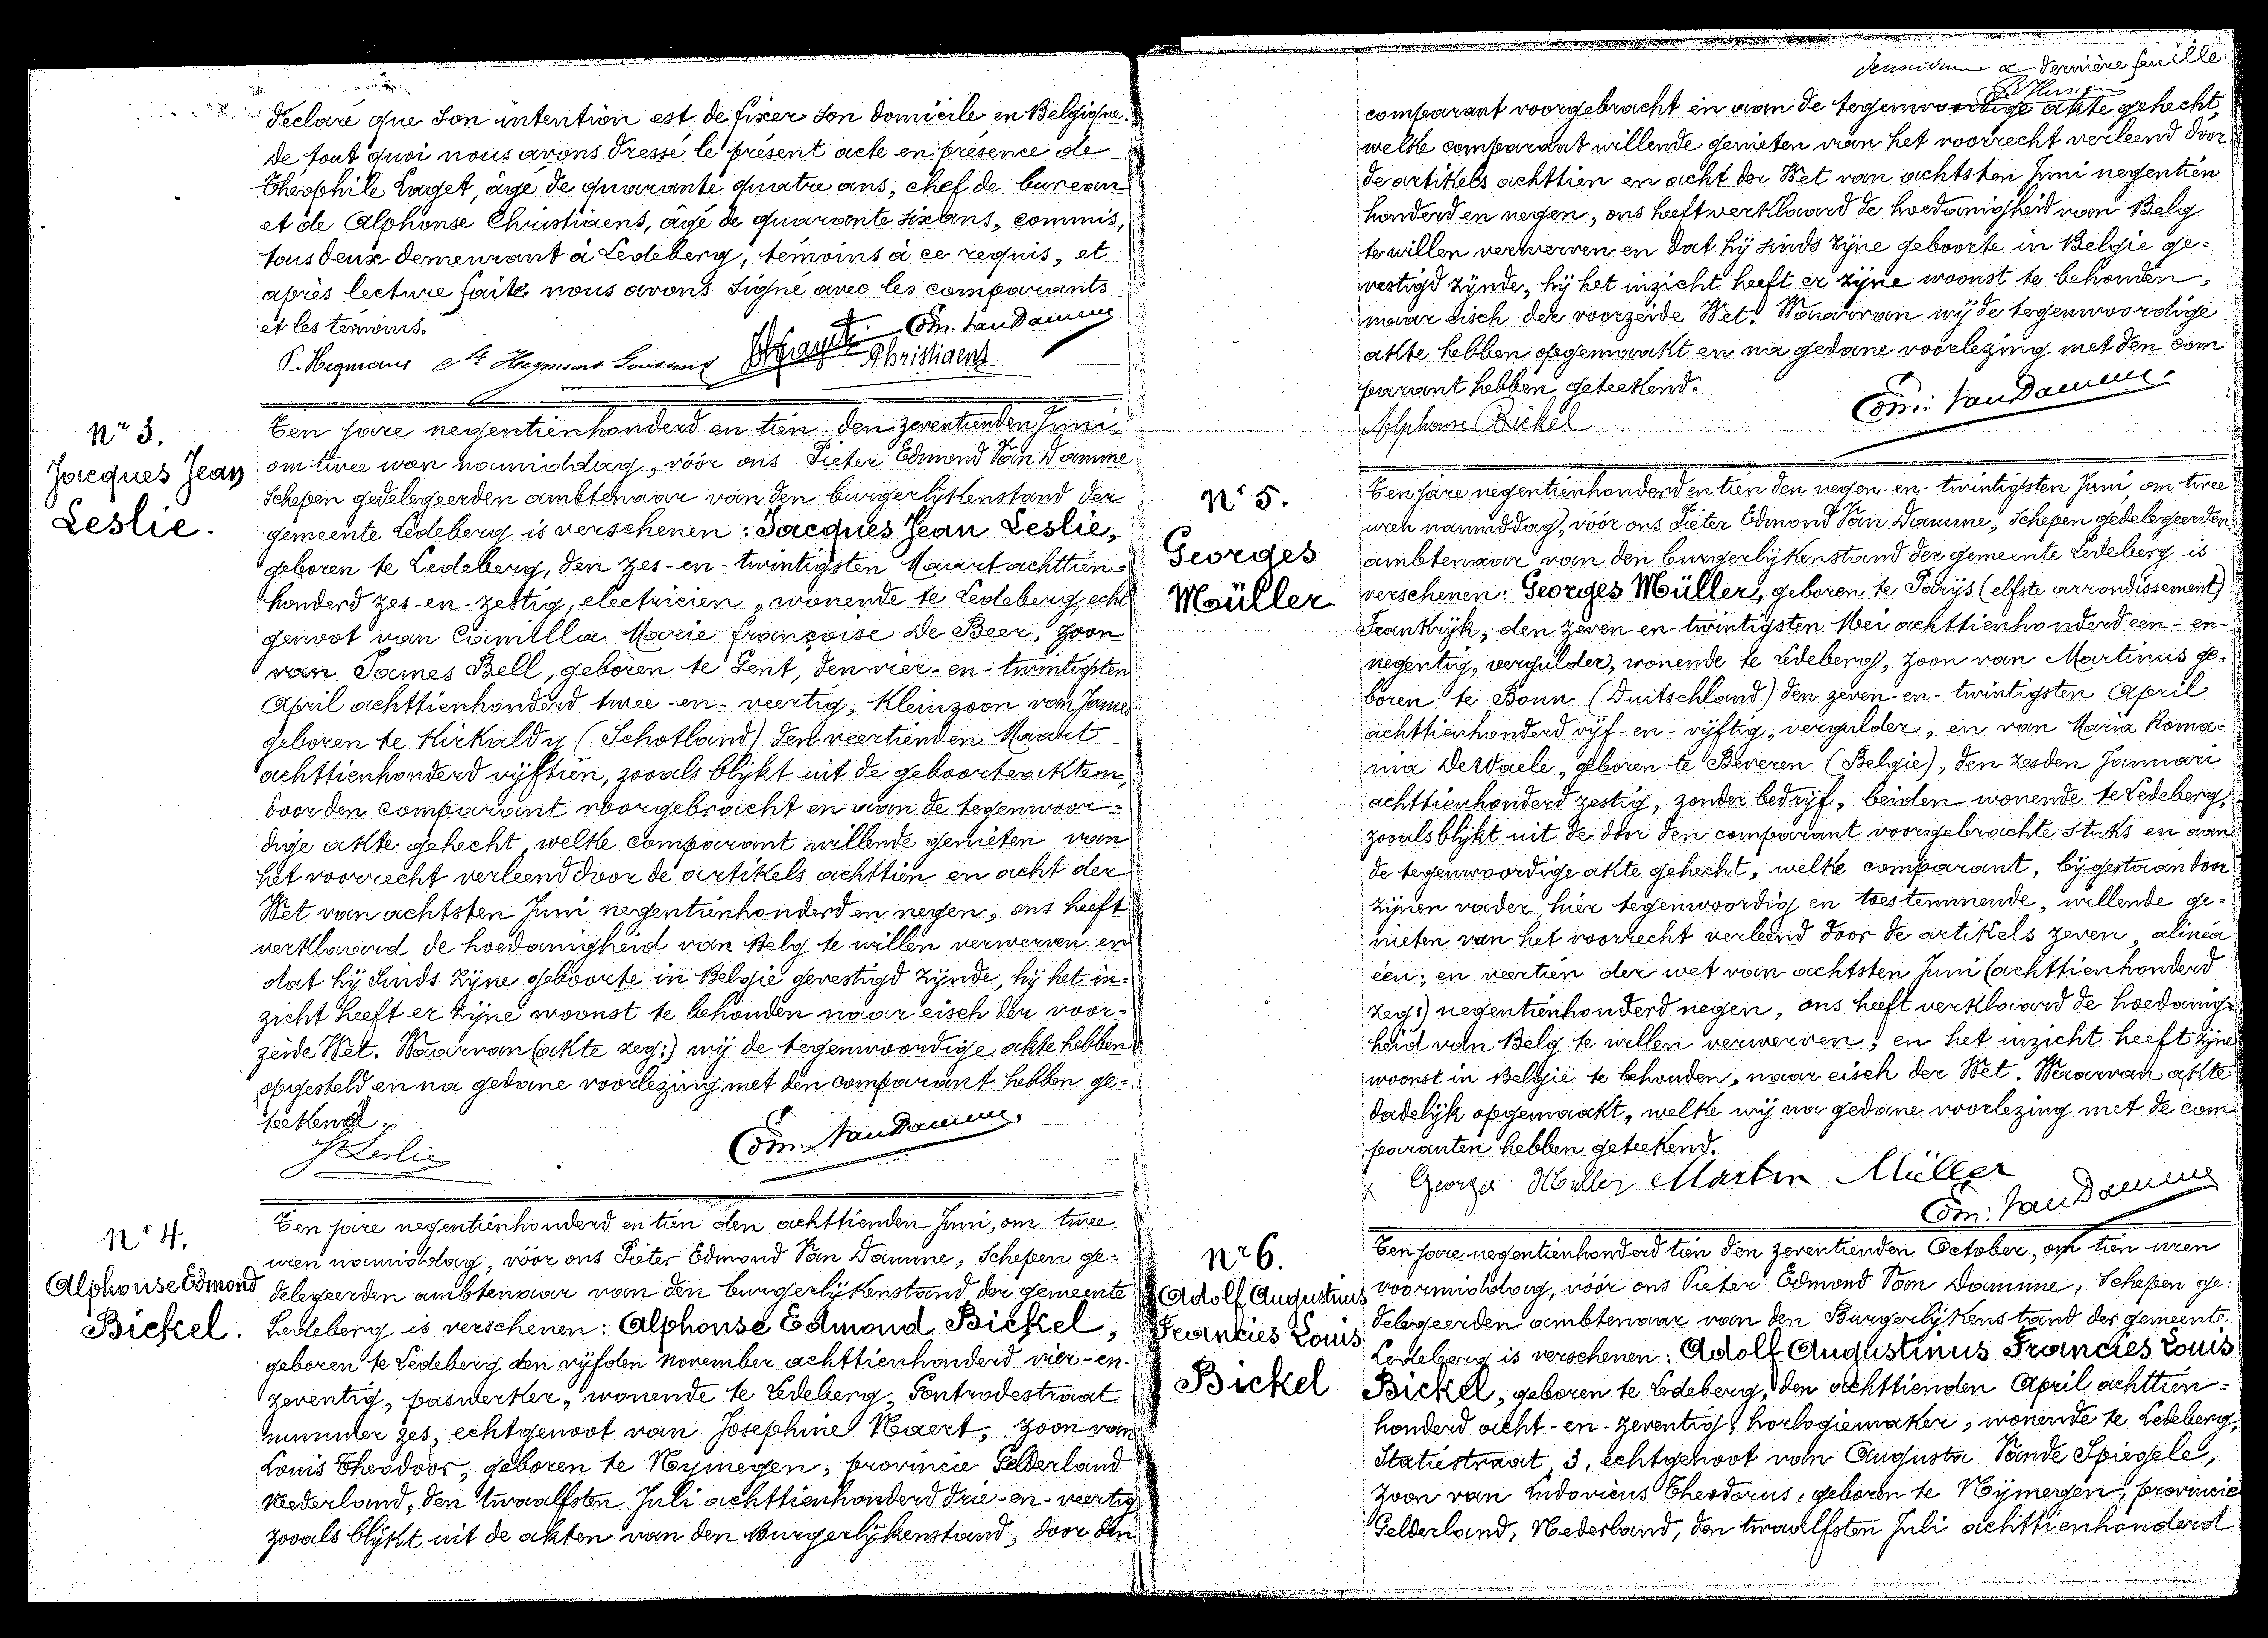 déclaré que son intention est de fixer son domicile en Belgique.
de tout quoi nous avons dressé le présent acte en présence de
Théophile Laget, âgé de quarante quatre ans, chef de bureau
et de Alphonse Christiaens, âgé de quarante six ans, commis,
tous deux demeurant à Ledeberg, témoins à ce requis, et
après lecture faite nous avons signé avec les comparants
et les témoins.
Edm. Van Damme
P. Hegmans Hegmans Christiaens
Nr 3.
Jacques Jean
Leslie.
Ten jare negentienhonderd en tien den zeventienden Juni,
om twee uren namiddag, vóór ons Pieter Edmond Van Damme
Schepen gedelegeerden ambtenaar van den burgerlijkenstand der
gemeente Ledeberg is verschenen: Jacques Jean Leslie,
geboren te Ledeberg, den zes-en-twintigsten Maart achttien=
honderd zes-en-zestig, electricien, wonende te Ledeberg, echt
genoot van Camilla Marie françoise De Beer, zoon
van James Bell, geboren te Gent, den vier-en-twintigsten
April achttienhonderd twee-en-veertig, Kleinzoon van James
geboren te Kirkaldy (Schotland) den veertienden Maart
achttienhonderd vijftien, zooals blijkt uit de geboorteakten,
door den comparant voorgebracht en aan de tegenwoor=
dige akte gehecht, welke comparant willende genieten van
het voorrecht verleend door de artikels achttien en acht der
Wet van achtsten Juni negentienhonderd en negen, ons heeft
verklaard de hoedanigheid van Belg te willen verwerven en
dat hij sinds zijne geboorte in België gevestigd zijnde, hij het in=
zicht heeft er zijne woonst te behouden naar eisch der voor=
zeide Wet. Waarvan (akte zeg:) wij de tegenwoordige akte hebben
opgesteld en na gedane voorlezing met den comparant hebben ge=
teekend.
J Leslie Edm. Van Damme.
Nr 4.
Alphonse Edmond
Bickel.
Ten jare negentienhonderd en tien den achttienden Juni, om twee
uren namiddag, vóór ons Pieter Edmond Van Damme, Schepen ge=
delegeerden ambtenaar van den burgerlijkenstand der gemeente
Ledeberg is verschenen: Alphonse Edmond Bickel,
geboren te Ledeberg den vijfden november achttienhonderd vier-en-
zeventig, paswerker, wonende te Ledeberg, Gontrodestraat
nummer zes, echtgenoot van Josephine Naert, zoon van
Louis Theodoor, geboren te Nymegen, provincie Gelderland
Nederland, den twaalfsten Juli achttienhonderd drie-en-veertig
zooals blijkt uit de akten van den Burgerlijkenstand, door den
dernière feuille
comparant voorgebracht en aan de tegenwoordige akte gehecht,
welke comparant willende genieten van het voorrecht verleend door
de artikels achttien en acht der Wet van achtsten Juni negentien
honderd en negen, ons heeft verklaard de hoedanigheid van Belg
te willen verwerven en dat hij sinds zijne geboorte in België ge=
vestigd zijnde, hij het inzicht heeft er zijne woonst te behouden,
naar eisch der voorzeide Wet. Waarvan wij de tegenwoordige
akte hebben opgemaakt en na gedane voorlezing met den com
parant hebben geteekend.
Alphonse Bickel Edm: Van Damme.
Nr 5.
Georges
Müller
Ten jare negentienhonderd en tien den negen-en-twintigsten Juni, om twee
uren namiddag, vóór ons Pieter Edmond Van Damme, Schepen gedelegeerden
ambtenaar van den burgerlijkenstand der gemeente Ledeberg is
verschenen: Georges Müller, geboren te Parijs (elfste arrondissement)
Frankrijk, den zeven-en-twintigsten Mei achttienhonderd een-en-
negentig, vergulder, wonende te Ledeberg, zoon van Martinus ge=
boren te Bonn (Duitschland) den zeven-en-twintigsten April
achttienhonderd vijf-en-vijftig, vergulder, en van Maria Roma=
nia DeWaele, geboren te Beveren (België), den zesden Januari
achttienhonderd zestig, zonder bedrijf, beiden wonende te Ledeberg,
zooals blijkt uit de door den comparant voorgebrachte stuks en aan
de tegenwoordige akte gehecht, welke comparant, bijgestaan door
zijnen vader, hier tegenwoordig en toestemmende, willende ge=
nieten van het voorrecht verleend door de artikels zeven, alinéa
één; en veertien der wet van achtsten Juni (achttienhonderd
zeg:) negentienhonderd negen, ons heeft verklaard de hoedanig=
heid van Belg te willen verwerven; en het inzicht heeft zijne
woonst in België te behouden, naar eisch der Wet. Waarvan akte
dadelijk opgemaakt, welke wij na gedane voorlezing met de com
paranten hebben geteekend.
Georges Muller Martin Müller
Edm: Van Damme
Nr 6.
Adolf Augustinus
Francies Louis
Bickel
Ten jare negentienhonderd tien den zeventienden October, om tien uren
voormiddag, vóór ons Pieter Edmond Van Damme, Schepen ge:
delegeerden ambtenaar van den Burgerlijkenstand der gemeente
Ledeberg is verschenen: Adolf Augustinus Francies Louis
Bickel, geboren te Ledeberg, den achttienden April achttien=
honderd acht-en-zeventig, horlogiemaker, wonende te Ledeberg,
Statiestraat, 3, echtgenoot van Augusta Vande Spiegele,
zoon van Ludovicus Theodorus, geboren te Nijmegen, provincie
Gelderland, Nederland, den twaalfsten Juli achttienhonderd